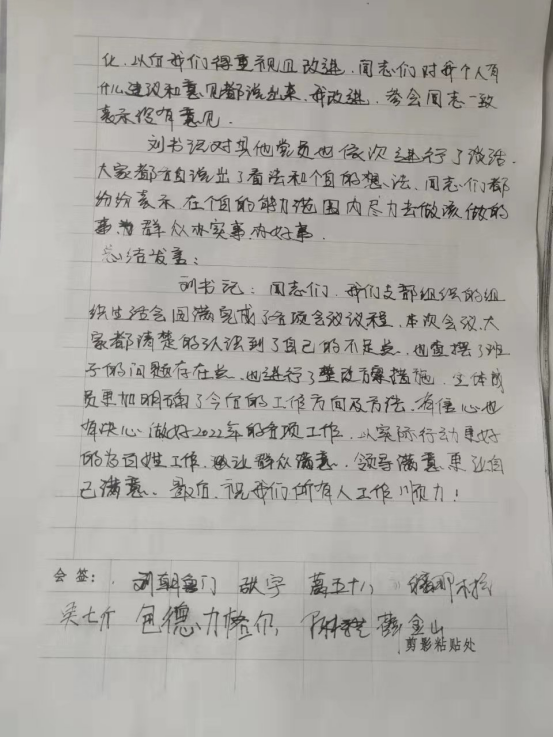 化,以后我们得重视且改进,同志们对我个人有
什么建议和意见都说出来,我改进,参会同志一致
表示没有意见。
刘书记对其他党员也依次进行了谈话,
大家都说出了看法和个自的想法,同志们都
纷纷表示在个自的能力范围内尽力去做该做的
事,为群众办实事,办好事。
总结发言:
刘书记:同志们,我们支部组织的组
织生活会圆满完成了各项会议议程,本次会议,大
家都清楚的认识到了自己的不足点,也查摆了班
子的问题存在点,也进行了整改方案措施,全体成
员更加明确了今后的工作方向及方法,有信心也
有决心做好2022年的各项工作,以实际行动更好
的为百姓工作,让群众满意,领导满意,更让自
己满意。最后,祝我们所有人工作顺力!
会签:
吴七斤 包德力格尔 金山
剪影粘贴处